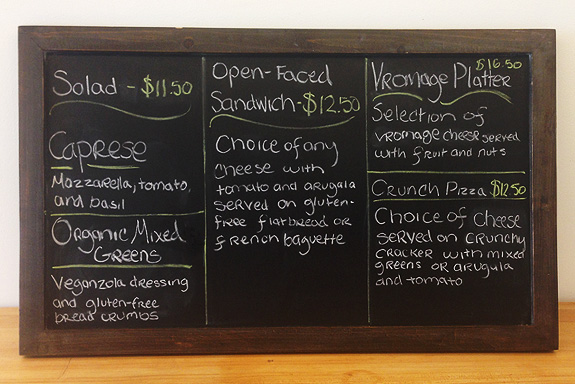 Salad - $11.50
Caprese
Mozzarella, tomato,
and basil
Organic Mixed
Greens
Veganzola dressing
and gluten-free
bread crumbs
Open-Faced
Sandwich-$12.50
Choice of any
cheese with
tomato and arugula
served on gluten-
free flatbread or
french baguette
$16.50
Vromage Platter
Selection of
vromage cheese served
with fruit and nuts
Crunch Pizza $12.50
Choice of cheese
served on crunchy
cracker with mixed
greens or arugula
and tomato